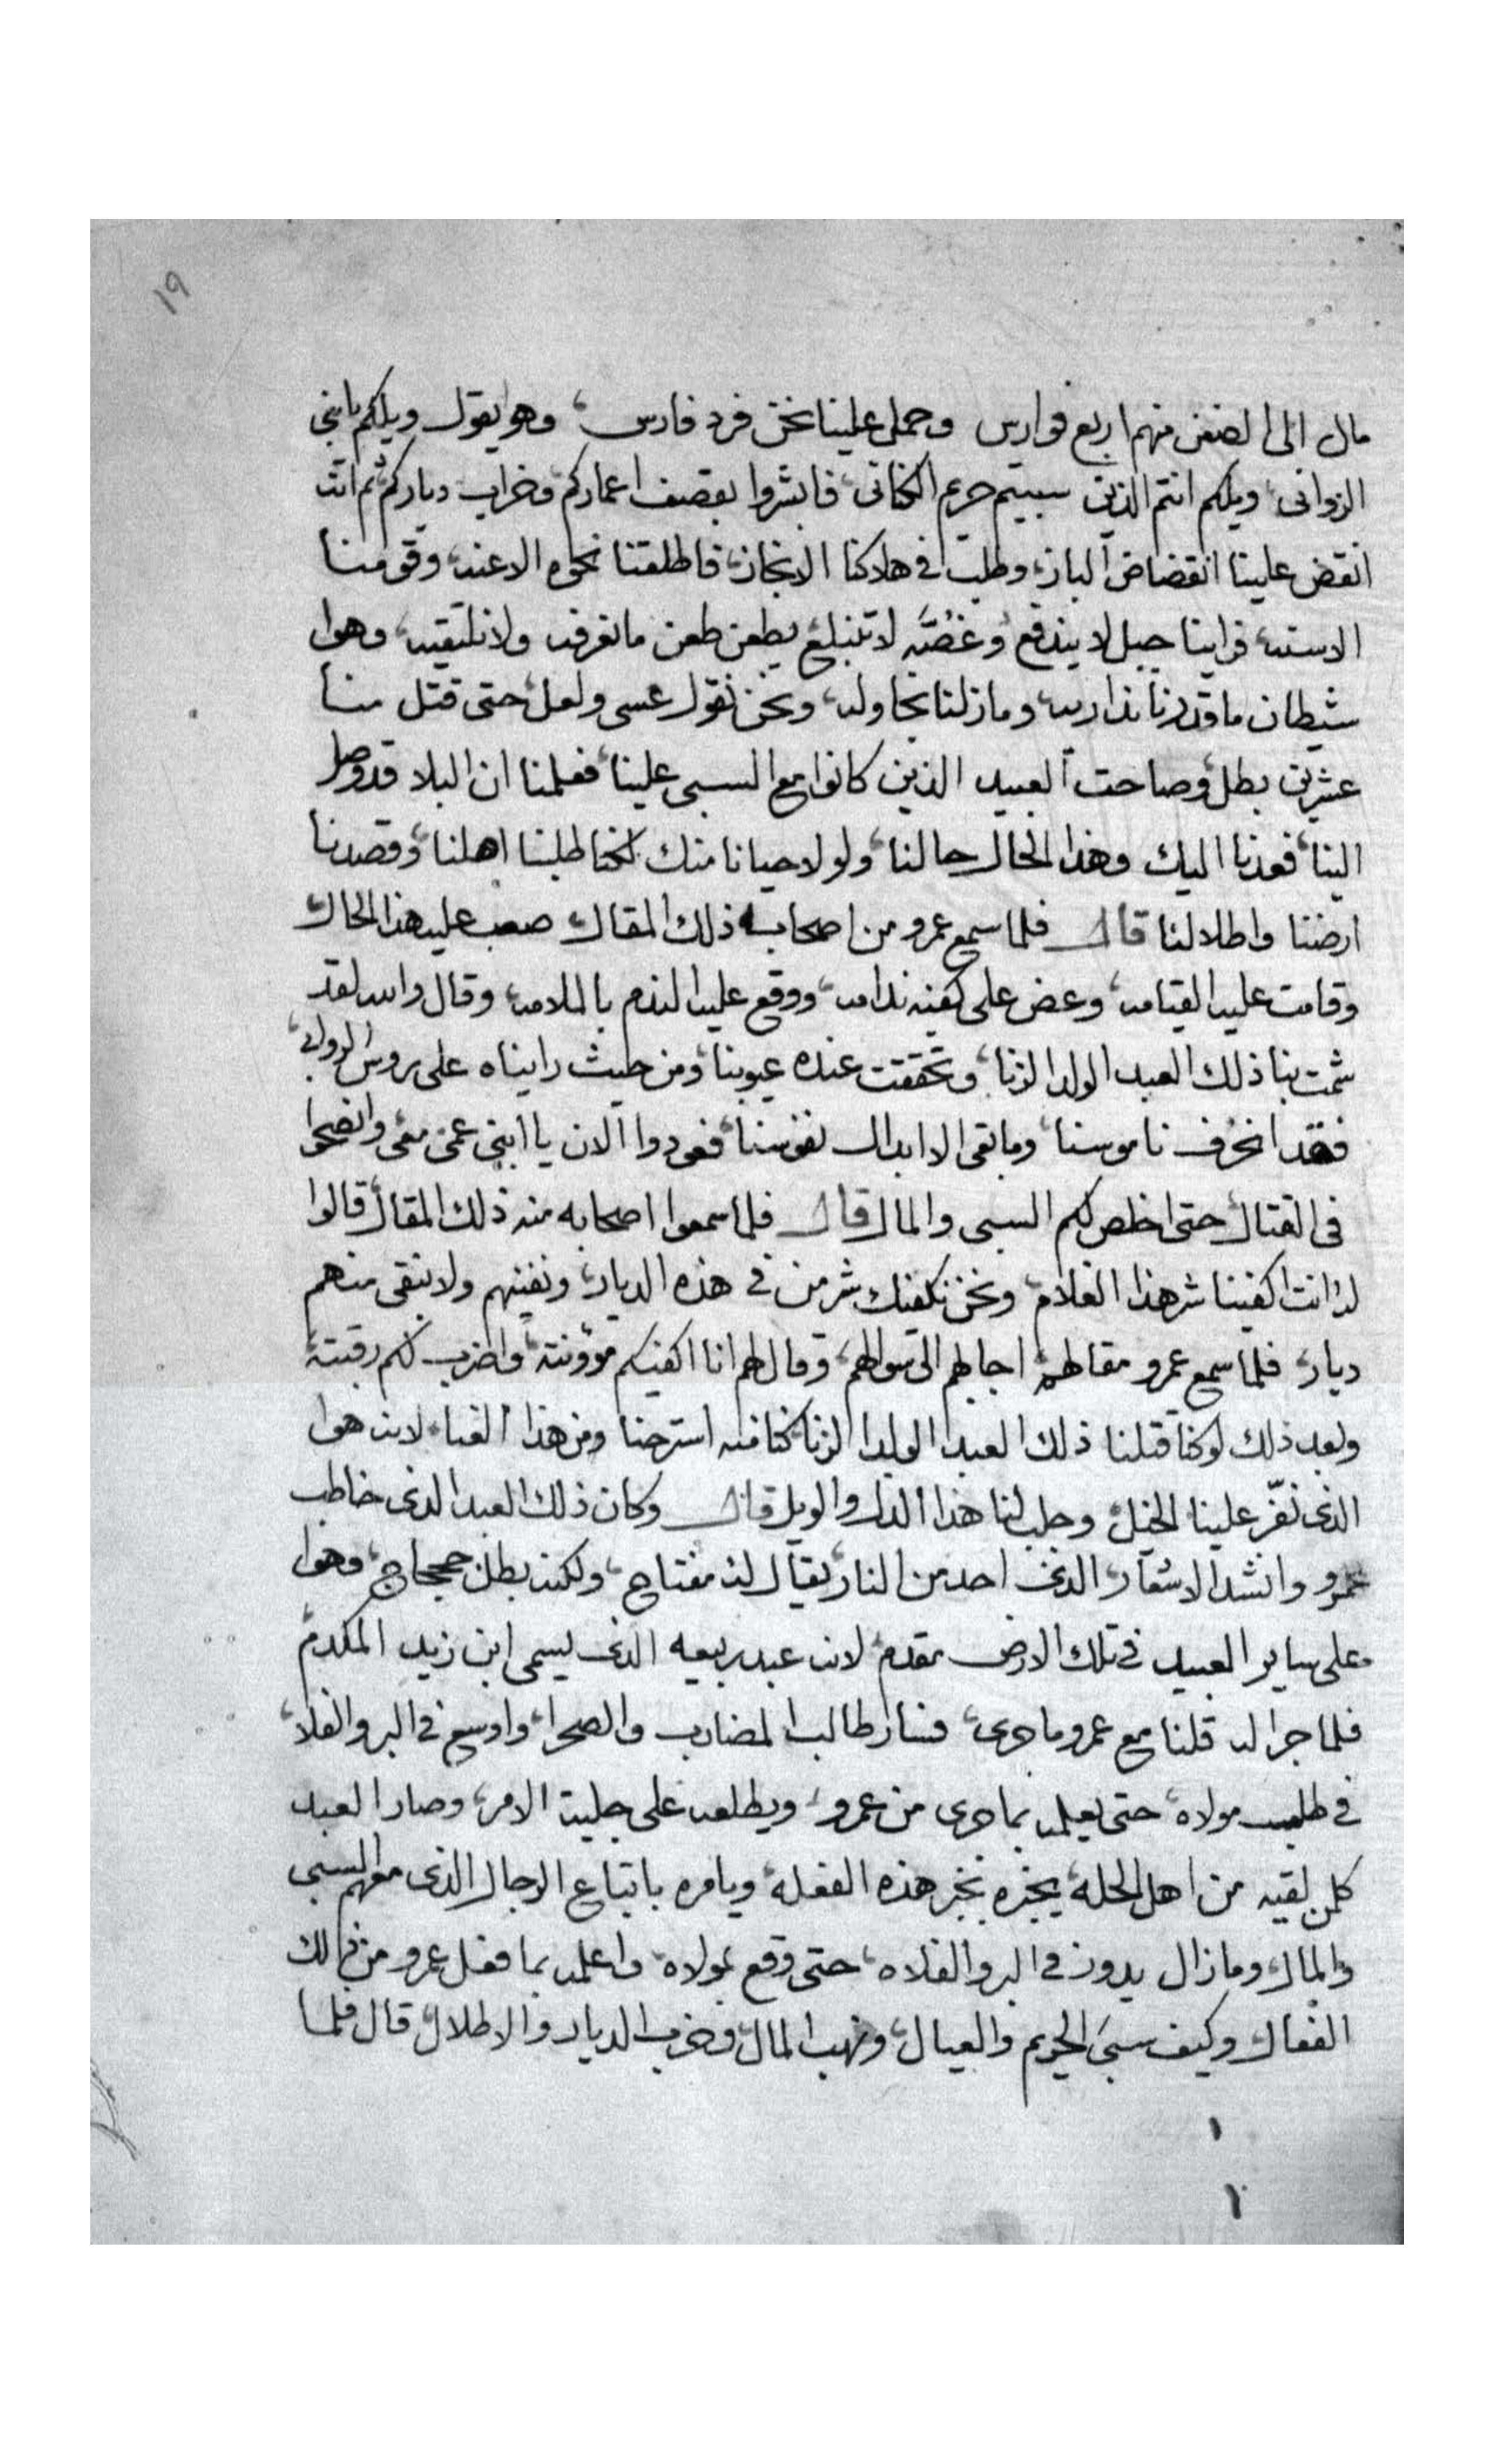 ١٩
مال الى الضعن منهم اربع فوارس وحمل علينا نحن فرد فارس، وهو يقول ويلكم يا بني
الزواني، ويلكم انتم الذين سبيتم حريم الكناني، فابشروا بقصف اعماركم، وخراب دياركم، ثم انه
انقض علينا انقضاض الباز، وطلب في هلاكنا الانجاز، فاطلقنا نحوه الاعنه، وقومنا
الاسنه، فراينا جبل لا يندفع، وغُصَّه لا تنبلع يطعن طعن ما نعرفه ولا نلتقيه، وهوا
شيطان ما قدرنا نداريه، وما زلنا نحاوله، ونحن نقول عسى ولعل، حتى قتل منا
عشرين بطل، وصاحت العبيد الذين كانوا مع السبى علينا، فعلمنا ان البلا قد وصل
الينا، فعدنا اليك وهذا الحال حالنا، ولولا حيانا منك لكنا طلبنا اهلنا، وقصدنا
ارضنا واطلالنا قال فلما سمع عمرو من اصحابه ذلك المقال صعب عليه هذا الحال،
وقامت عليه القيامه، وعض على كفيه ندامه، ووقع عليه الندم بالملامه، وقال والله لقد
شمت بنا ذلك العبد الولد الزنا، وتحققت عنده عيوبنا، ومن حيث رايناه على روس الروابي،
فقد انخرف ناموسنا، وما بقى الا ابدال نفوسنا، فعودوا الان يا ابني عمى معى وانضحوا
في القتال، حتى اخلص لكم السبى والمال قال فلما سمعوا اصحابه منه ذلك المقال، قالوا
له انت اكفينا شر هذا الغلام، ونحن نكفيك شر من في هذه الديار، ونفنيهم ولا نبقى منهم
ديار، فلما سمع عمرو مقاطهم اجابهم الى سوالهم، وقال لهم انا اكفيكم موؤنته، واضرب لكم رقبته،
وبعد ذلك لو كنا قتلنا ذلك العبد الولد الزنا، كنا منه استرحنا ومن هذا العنا، لانه هوا
الذى نفّر علينا الخيل، وجلب لنا هذا الذل والويل قال وكان ذلك العبد الذى خاطب
عمرو وانشد الاشعار، الذى احد من النار، يقال له مفتاح، ولكنه بطل جحجاح، وهوا
على ساير العبيد في تلك الارض مقدم، لانه عبد ربيعه الذى يسمى ابن زيد المكدم،
فلما جرا له قلنا مع عمرو ما جرى، فسار طالب المضارب والصحرا، واوسع في البر والفلا،
في طلب مولاه، حتى يعلمه بما جرى من عمرو، ويطلعه على جلية الامر، وصار العبد
كلمن لقيه من اهل الحله، يخبره بخبر هذه الفعله، ويامره باتباع الرجال الذى معهم السبى
والمال، وما زال يدور في البر والفلاه، حتى وقع بمولاه، واعلمه بما فعل عمرو من ذلك
الفعال، وكيف سبَى الحريم والعيال، ونهب المال، وخرب الديار والاطلال، قال فلما
١